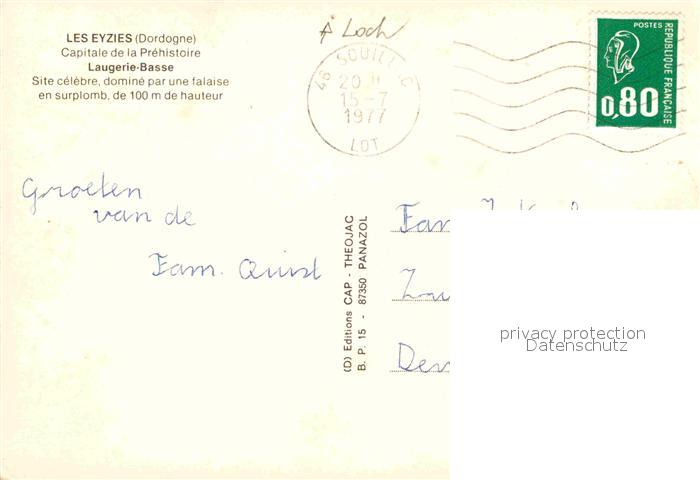 LES EYZIES (Dordogne)
Capitale de la Préhistoire
Laugerie-Basse
Site célèbre, dominé par une falaise
en surplomb, de 100 m de hauteur
POSTES
REPUBLIQUE FRANÇAISE
0,80
15-7
1977
LOT
Groeten
van de
Fam. Quist
(D) Editions CAP - THEOJAC
B. P. 15 - 87350 PANAZOL
Fam
privacy protection
Datenschutz